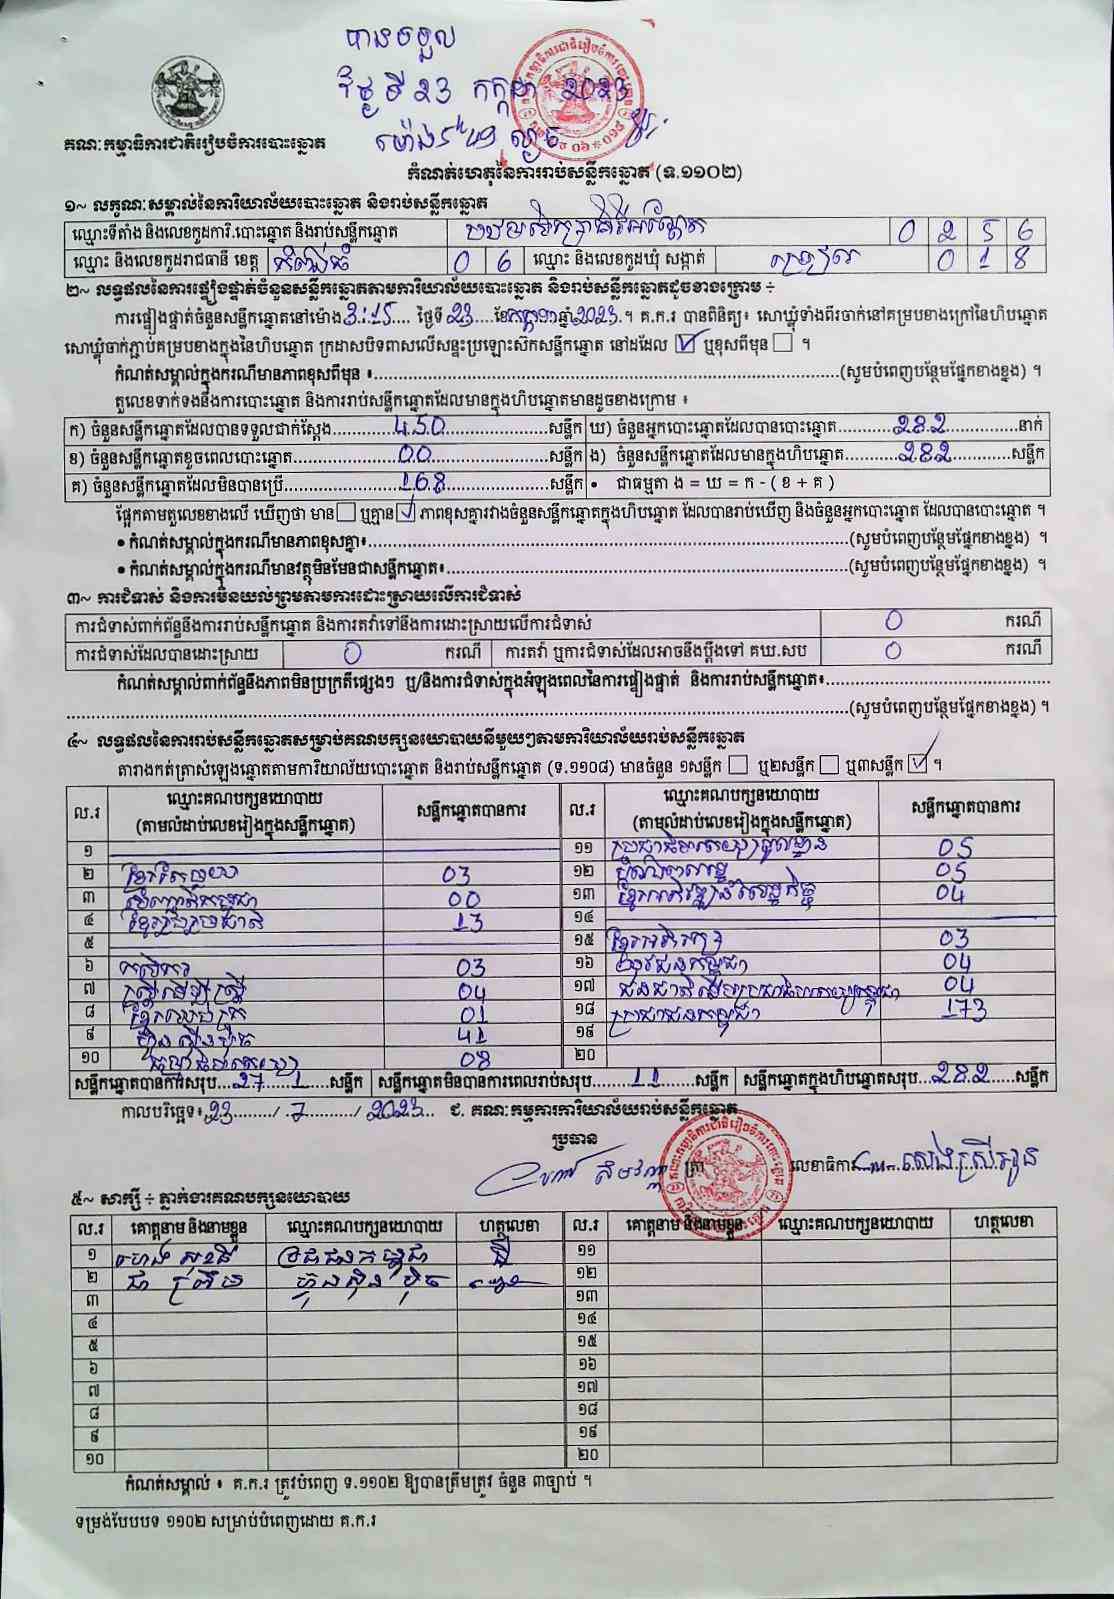 បានចប់
ថ្ងៃទី 23 កក្កដា 2023
ម៉ោង
គណៈកម្មាធិការជាតិរៀបចំការបោះឆ្នោត
កំណត់ហេតុនៃការរាប់សន្លឹកឆ្នោត (ទ.១១០២)
១~ លក្ខណៈសម្គាល់នៃការិយាល័យបោះឆ្នោត និងរាប់សន្លឹកឆ្នោត
ឈ្មោះទីតាំង និងលេខកូដការិ.បោះឆ្នោត និងរាប់សន្លឹកឆ្នោត 0 2 5 6
ឈ្មោះ និងលេខកូដរាជធានី ខេត្ត កំពង់ធំ 0 6 ឈ្មោះ និងលេខកូដឃុំ សង្កាត់ 0 1 8
២~ លទ្ធផលនៃការផ្ទៀងផ្ទាត់ចំនួនសន្លឹកឆ្នោតតាមការិយាល័យបោះឆ្នោត និងរាប់សន្លឹកឆ្នោតដូចខាងក្រោម ÷
ការផ្ទៀងផ្ទាត់ចំនួនសន្លឹកឆ្នោតនៅម៉ោង 3:15 ថ្ងៃទី 23 ខែ កក្កដា ឆ្នាំ 2023 ។ គ.ក.រ បានពិនិត្យ៖ សោឃ្លុំទាំងពីរចាក់នៅគម្របខាងក្រៅនៃហិបឆ្នោត
សោឃ្លុំចាក់ភ្ជាប់គម្របខាងក្នុងនៃហិបឆ្នោត ក្រដាសបិទពាសលើសន្ទះប្រឡោះស៊កសន្លឹកឆ្នោត នៅដដែល ☑ ឬខុសពីមុន ☐ ។
កំណត់សម្គាល់ក្នុងករណីមានភាពខុសពីមុន ៖ (សូមបំពេញបន្ថែមផ្នែកខាងខ្នង) ។
តួលេខទាក់ទងនឹងការបោះឆ្នោត និងការរាប់សន្លឹកឆ្នោតដែលមានក្នុងហិបឆ្នោតមានដូចខាងក្រោម ៖
ក) ចំនួនសន្លឹកឆ្នោតដែលបានទទួលជាក់ស្តែង 450 សន្លឹក ឃ) ចំនួនអ្នកបោះឆ្នោតដែលបានបោះឆ្នោត 282 នាក់
ខ) ចំនួនសន្លឹកឆ្នោតខូចពេលបោះឆ្នោត 00 សន្លឹក ង) ចំនួនសន្លឹកឆ្នោតដែលមានក្នុងហិបឆ្នោត 282 សន្លឹក
គ) ចំនួនសន្លឹកឆ្នោតដែលមិនបានប្រើ 168 សន្លឹក • ជាធម្មតា ង = ឃ = ក - ( ខ + គ )
ផ្អែកតាមតួលេខខាងលើ ឃើញថា មាន ☐ ឬគ្មាន ☑ ភាពខុសគ្នារវាងចំនួនសន្លឹកឆ្នោតក្នុងហិបឆ្នោត ដែលបានរាប់ឃើញ និងចំនួនអ្នកបោះឆ្នោត ដែលបានបោះឆ្នោត ។
• កំណត់សម្គាល់ក្នុងករណីមានភាពខុសគ្នា៖ (សូមបំពេញបន្ថែមផ្នែកខាងខ្នង) ។
• កំណត់សម្គាល់ក្នុងករណីមានវត្ថុមិនមែនជាសន្លឹកឆ្នោត៖ (សូមបំពេញបន្ថែមផ្នែកខាងខ្នង) ។
៣~ ការជំទាស់ និងការមិនយល់ព្រមតាមការដោះស្រាយលើការជំទាស់
ការជំទាស់ពាក់ព័ន្ធនឹងការរាប់សន្លឹកឆ្នោត និងការតវ៉ាទៅនឹងការដោះស្រាយលើការជំទាស់ 0 ករណី
ការជំទាស់ដែលបានដោះស្រាយ 0 ករណី ការតវ៉ា ឬការជំទាស់ដែលអាចនឹងប្តឹងទៅ គឃ.សប 0 ករណី
កំណត់សម្គាល់ពាក់ព័ន្ធនឹងភាពមិនប្រក្រតីផ្សេងៗ ឬ/និងការជំទាស់ក្នុងអំឡុងពេលនៃការផ្ទៀងផ្ទាត់ និងការរាប់សន្លឹកឆ្នោត៖
(សូមបំពេញបន្ថែមផ្នែកខាងខ្នង) ។
៤~ លទ្ធផលនៃការរាប់សន្លឹកឆ្នោតសម្រាប់គណបក្សនយោបាយនីមួយៗតាមការិយាល័យរាប់សន្លឹកឆ្នោត
តារាងកត់ត្រាសំឡេងឆ្នោតតាមការិយាល័យបោះឆ្នោត និងរាប់សន្លឹកឆ្នោត (ទ.១១០៨) មានចំនួន ១សន្លឹក ☐ ឬ២សន្លឹក ☐ ឬ៣សន្លឹក ☑ ។
ល.រ ឈ្មោះគណបក្សនយោបាយ (តាមលំដាប់លេខរៀងក្នុងសន្លឹកឆ្នោត) សន្លឹកឆ្នោតបានការ ល.រ ឈ្មោះគណបក្សនយោបាយ (តាមលំដាប់លេខរៀងក្នុងសន្លឹកឆ្នោត) សន្លឹកឆ្នោតបានការ
១ ១១ 05
២ 03 ១២ 05
៣ 00 ១៣ 04
៤ ខ្មែររួបរួមជាតិ 13 ១៤
៥ ១៥ 03
៦ កសិករ 03 ១៦ យុវជនកម្ពុជា 04
៧ ស្ត្រីដើម្បីស្ត្រី 04 ១៧ ជនជាតិដើមប្រជាធិបតេយ្យកម្ពុជា 04
៨ 01 ១៨ ប្រជាជនកម្ពុជា 173
៩ ហ្វ៊ុនស៊ិនប៉ិច 41 ១៩
១០ 08 ២០
សន្លឹកឆ្នោតបានការសរុប 271 សន្លឹក សន្លឹកឆ្នោតមិនបានការពេលរាប់សរុប 11 សន្លឹក សន្លឹកឆ្នោតក្នុងហិបឆ្នោតសរុប 282 សន្លឹក
កាលបរិច្ឆេទ៖ 23 / 7 / 2023 ជ. គណៈកម្មការការិយាល័យរាប់សន្លឹកឆ្នោត
ប្រធាន
ត្រា លេខាធិការ
៥~ សាក្សី ÷ ភ្នាក់ងារគណបក្សនយោបាយ
ល.រ គោត្តនាម និងនាមខ្លួន ឈ្មោះគណបក្សនយោបាយ ហត្ថលេខា ល.រ គោត្តនាម និងនាមខ្លួន ឈ្មោះគណបក្សនយោបាយ ហត្ថលេខា
១ ប្រជាជនកម្ពុជា ១១
២ ហ្វ៊ុនស៊ិនប៉ិច ១២
៣ ១៣
៤ ១៤
៥ ១៥
៦ ១៦
៧ ១៧
៨ ១៨
៩ ១៩
១០ ២០
កំណត់សម្គាល់ ៖ គ.ក.រ ត្រូវបំពេញ ទ.១១០២ ឱ្យបានត្រឹមត្រូវ ចំនួន ៣ច្បាប់ ។
ទម្រង់បែបបទ ១១០២ សម្រាប់បំពេញដោយ គ.ក.រ